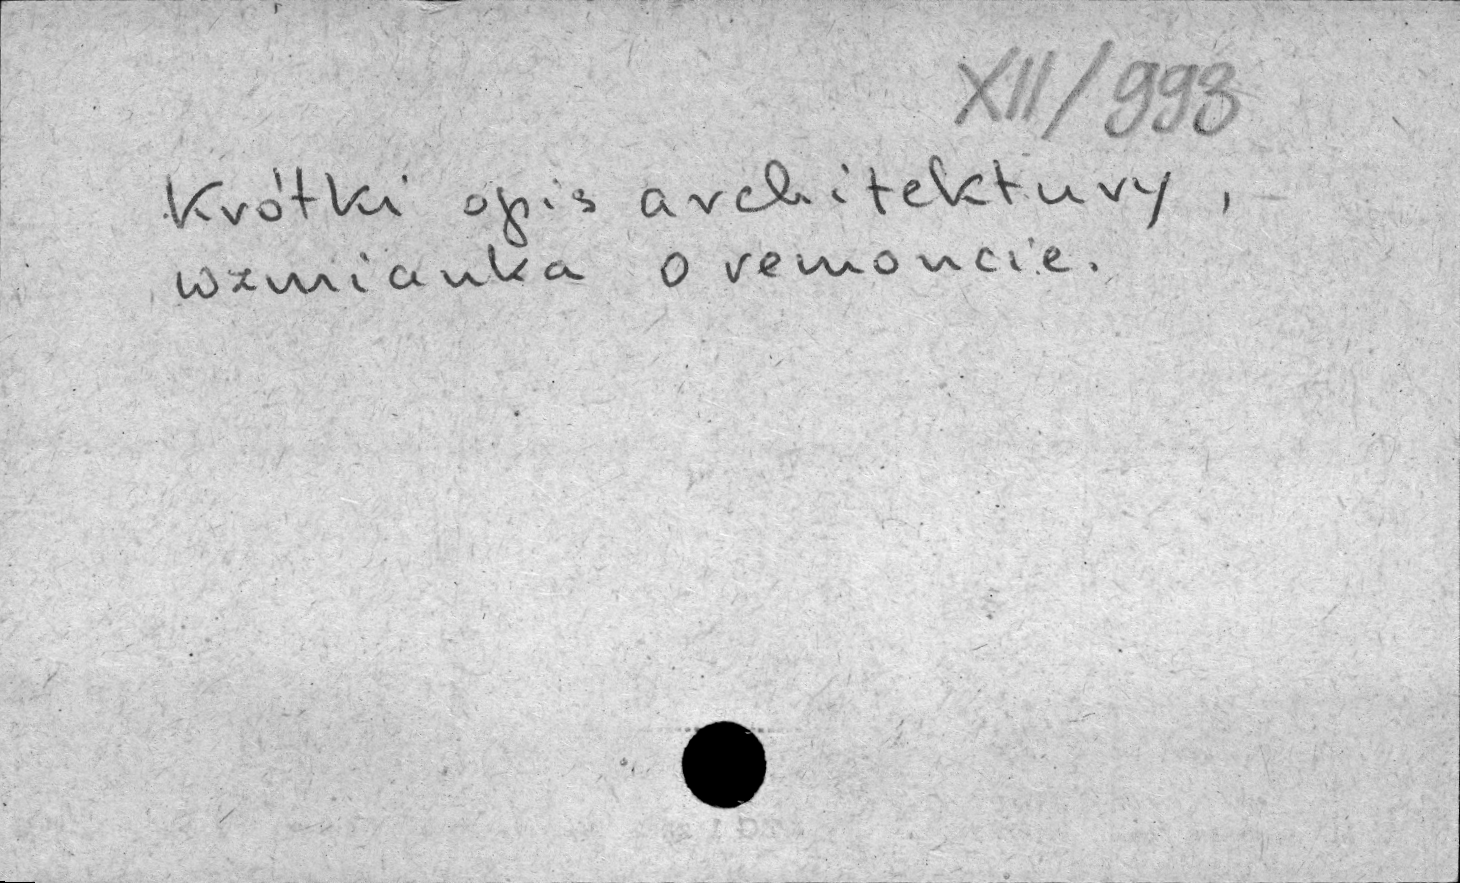 XII/993
Krótki opis architektury,
wzmianka o remoncie.